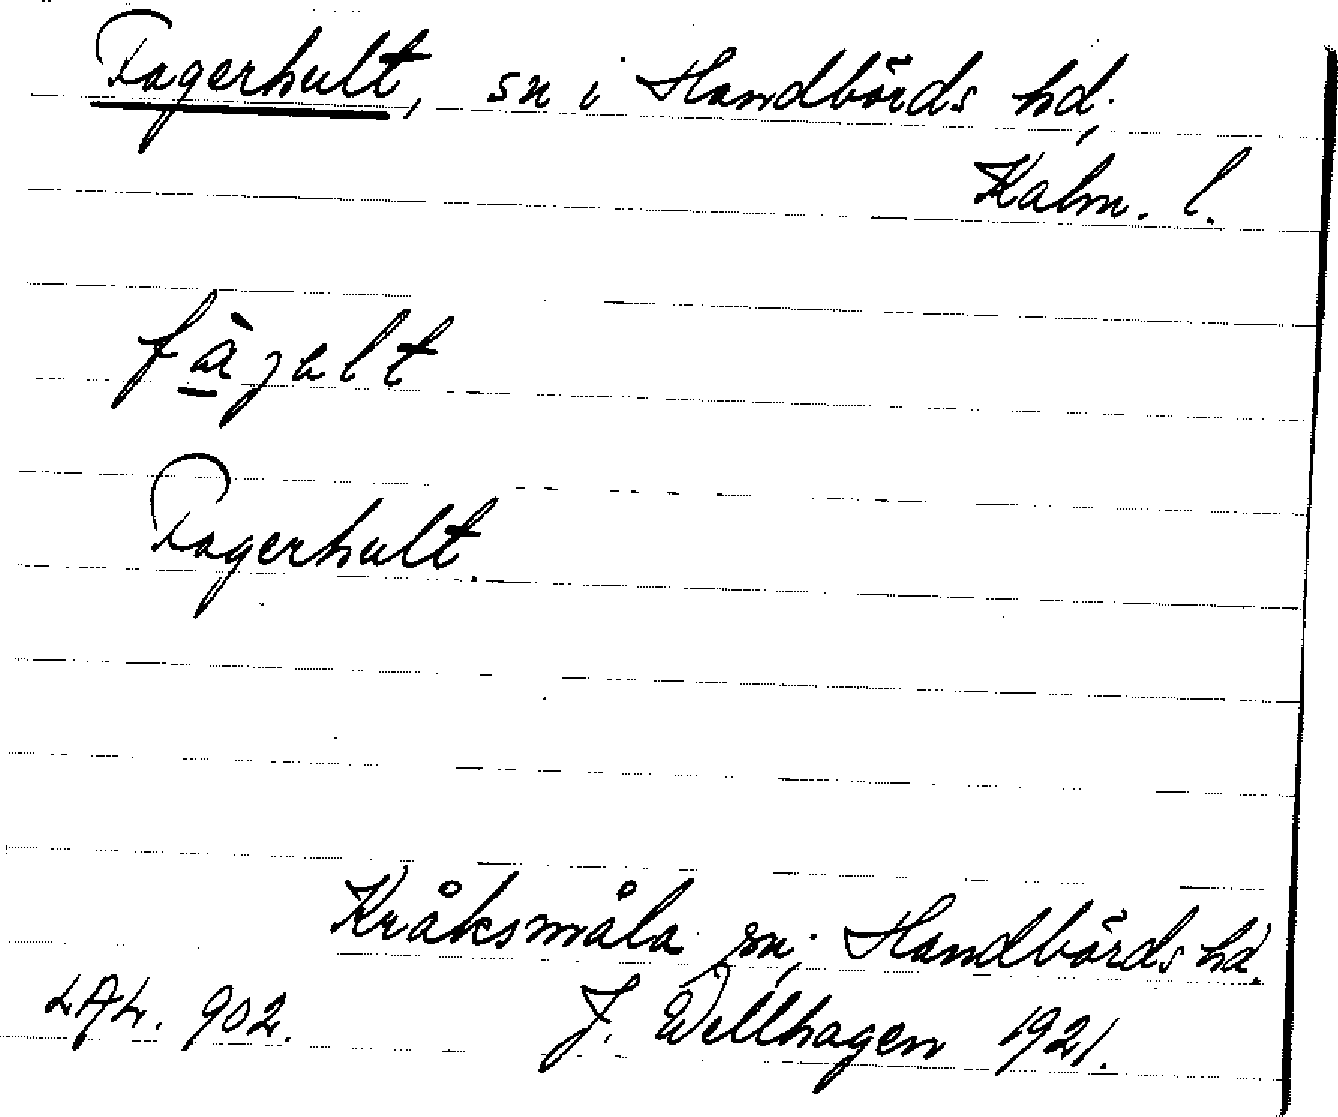 Fagerhult, sn i Handbörds hd,
Kalm. l.
fàjalt
Fagerhult.
Kråksmåla sn, Handbörds hd.
LAL. 902. J. Wellhagen 1921.